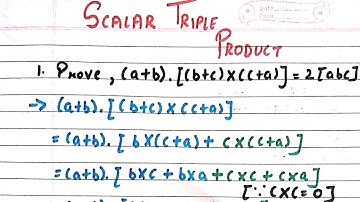 SCALAR TRIPLE
PRODUCT
1. Prove, (a+b).[(b+c)×(c+a)]=2[abc]
→ (a+b).[(b+c)×(c+a)]
=(a+b).[b×(c+a)+c×(c+a)]
=(a+b).[b×c+b×a+c×c+c×a]
[∵c×c=0]